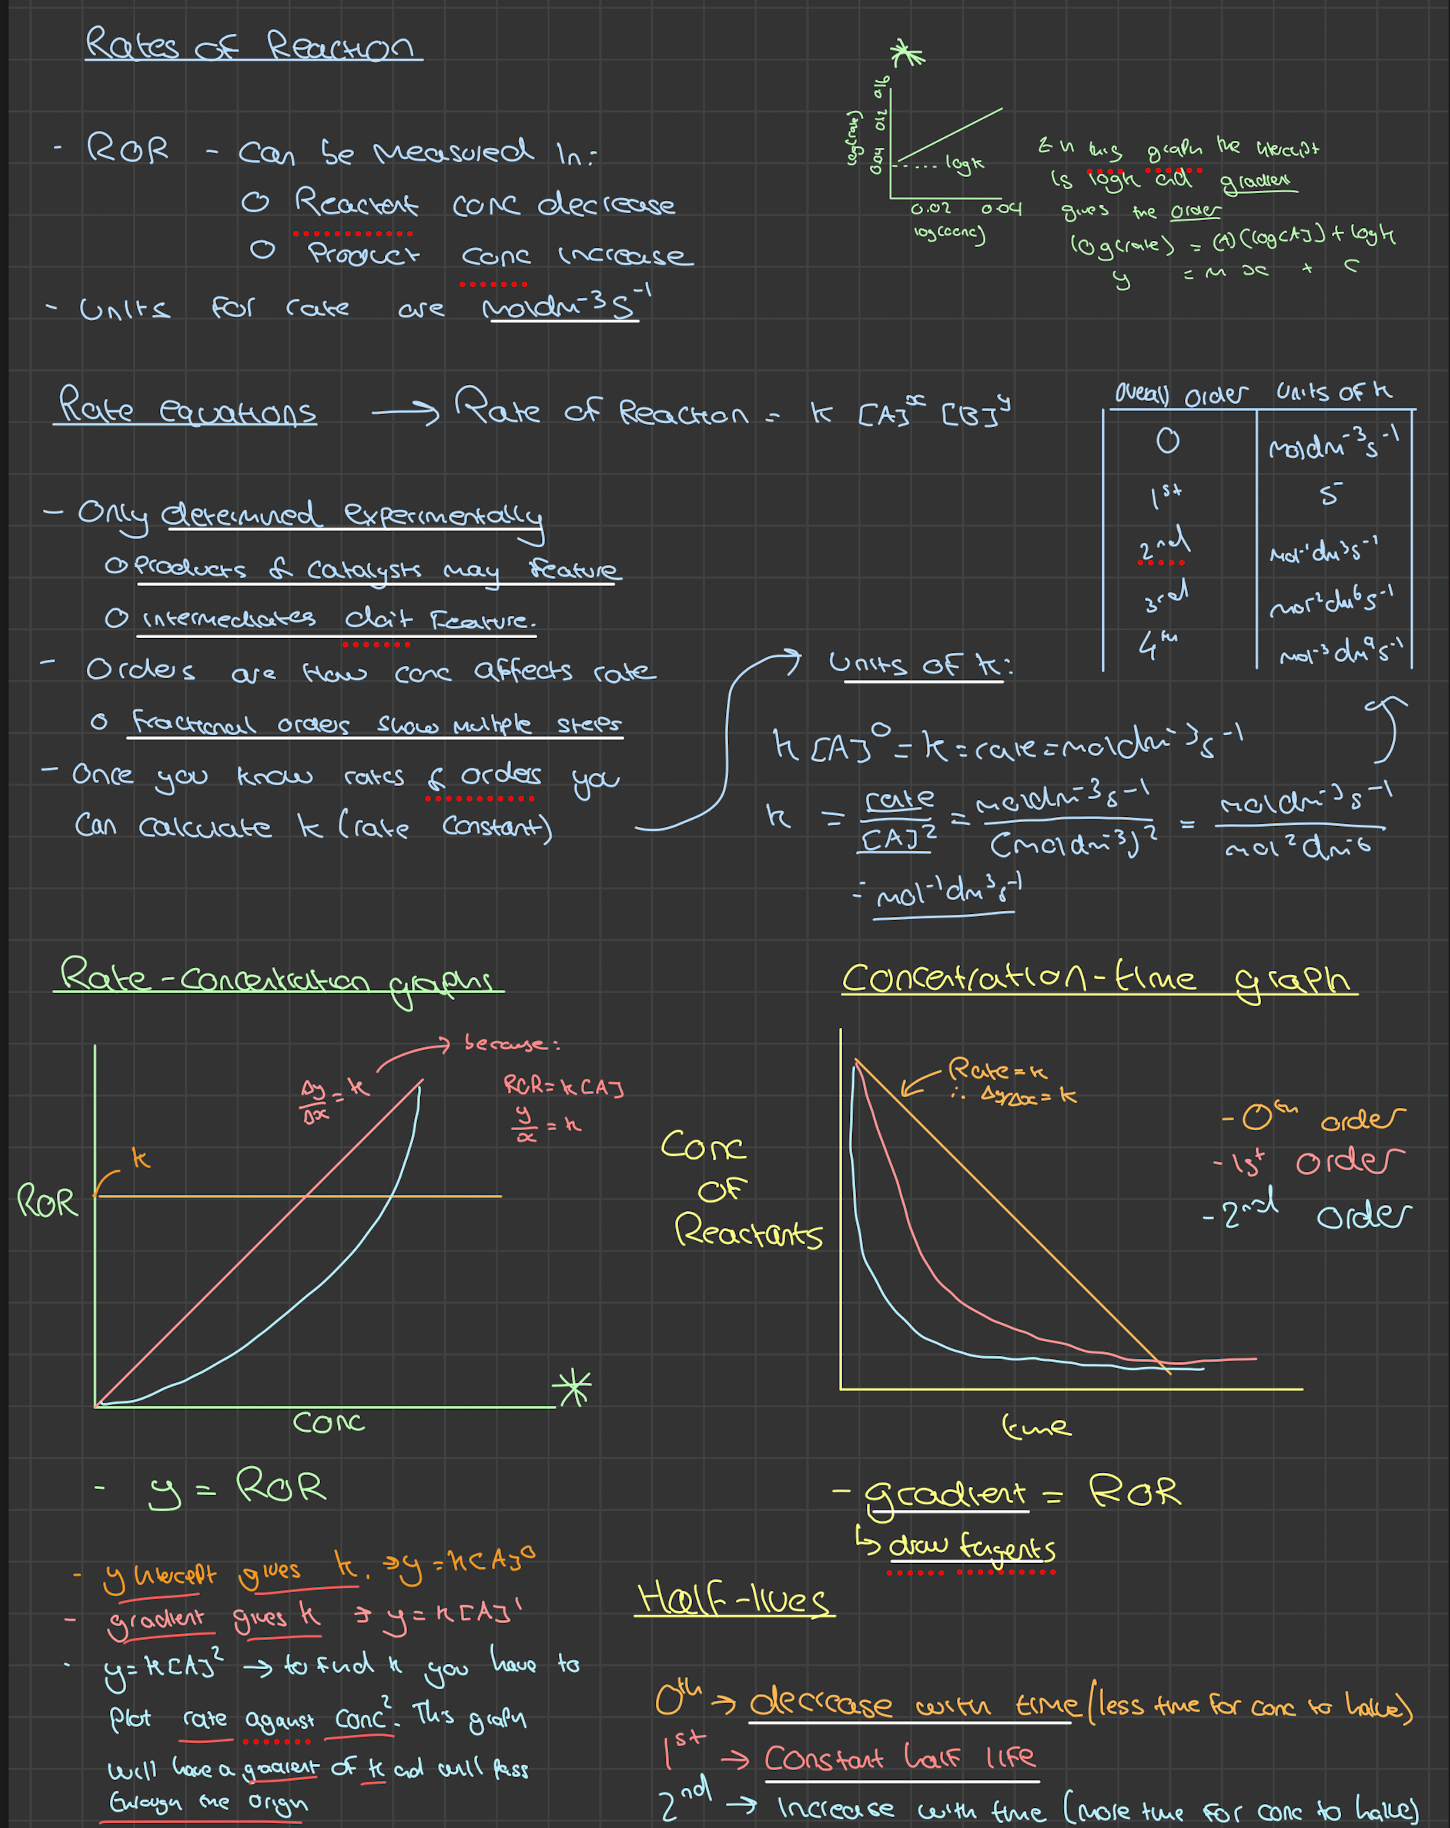 Rates of Reaction
- ROR - Can be measured in:
○ Reactant conc decrease
○ Product conc increase
- Units for rate are moldm⁻³s⁻¹
*
log(rate)
0.04 0.12 0.16
log k
0.02 0.04
log(conc)
In this graph the intercept
is logk and gradient
gives the order
log(rate) = (n)(log[A]) + logk
y = m x + c
Rate equations → Rate of Reaction = k [A]ˣ [B]ʸ
Overall order | Units of k
0 | moldm⁻³s⁻¹
1st | s⁻
2nd | mol⁻¹dm³s⁻¹
3rd | mol⁻²dm⁶s⁻¹
4th | mol⁻³dm⁹s⁻¹
- Only determined experimentally
○ Products & catalysts may feature
○ intermediates don't feature.
- Orders are how conc affects rate
○ fractional orders show multiple steps
- Once you know rates & orders you
can calculate k (rate constant)
→ Units of k:
k[A]⁰ = k = rate = moldm⁻³s⁻¹
k = rate/[A]² = moldm⁻³s⁻¹/(moldm⁻³)² = moldm⁻³s⁻¹/mol²dm⁻⁶
= mol⁻¹dm³s⁻¹
Rate-concentration graphs
Δy/Δx = k
→ because:
ROR = k[A]
y/x = k
k
ROR
conc
*
- y = ROR
- y intercept gives k. → y = k[A]⁰
- gradient gives k → y = k[A]¹
- y = k[A]² → to find k you have to
plot rate against conc². This graph
will have a gradient of k and will pass
through the origin
Concentration-time graph
Rate = k
∴ Δy/Δx = k
- 0th order
- 1st order
- 2nd order
Conc
of
Reactants
time
- gradient = ROR
↳ draw tangents
Half-lives
0th → decrease with time (less time for conc to halve)
1st → Constant half life
2nd → increase with time (more time for conc to halve)